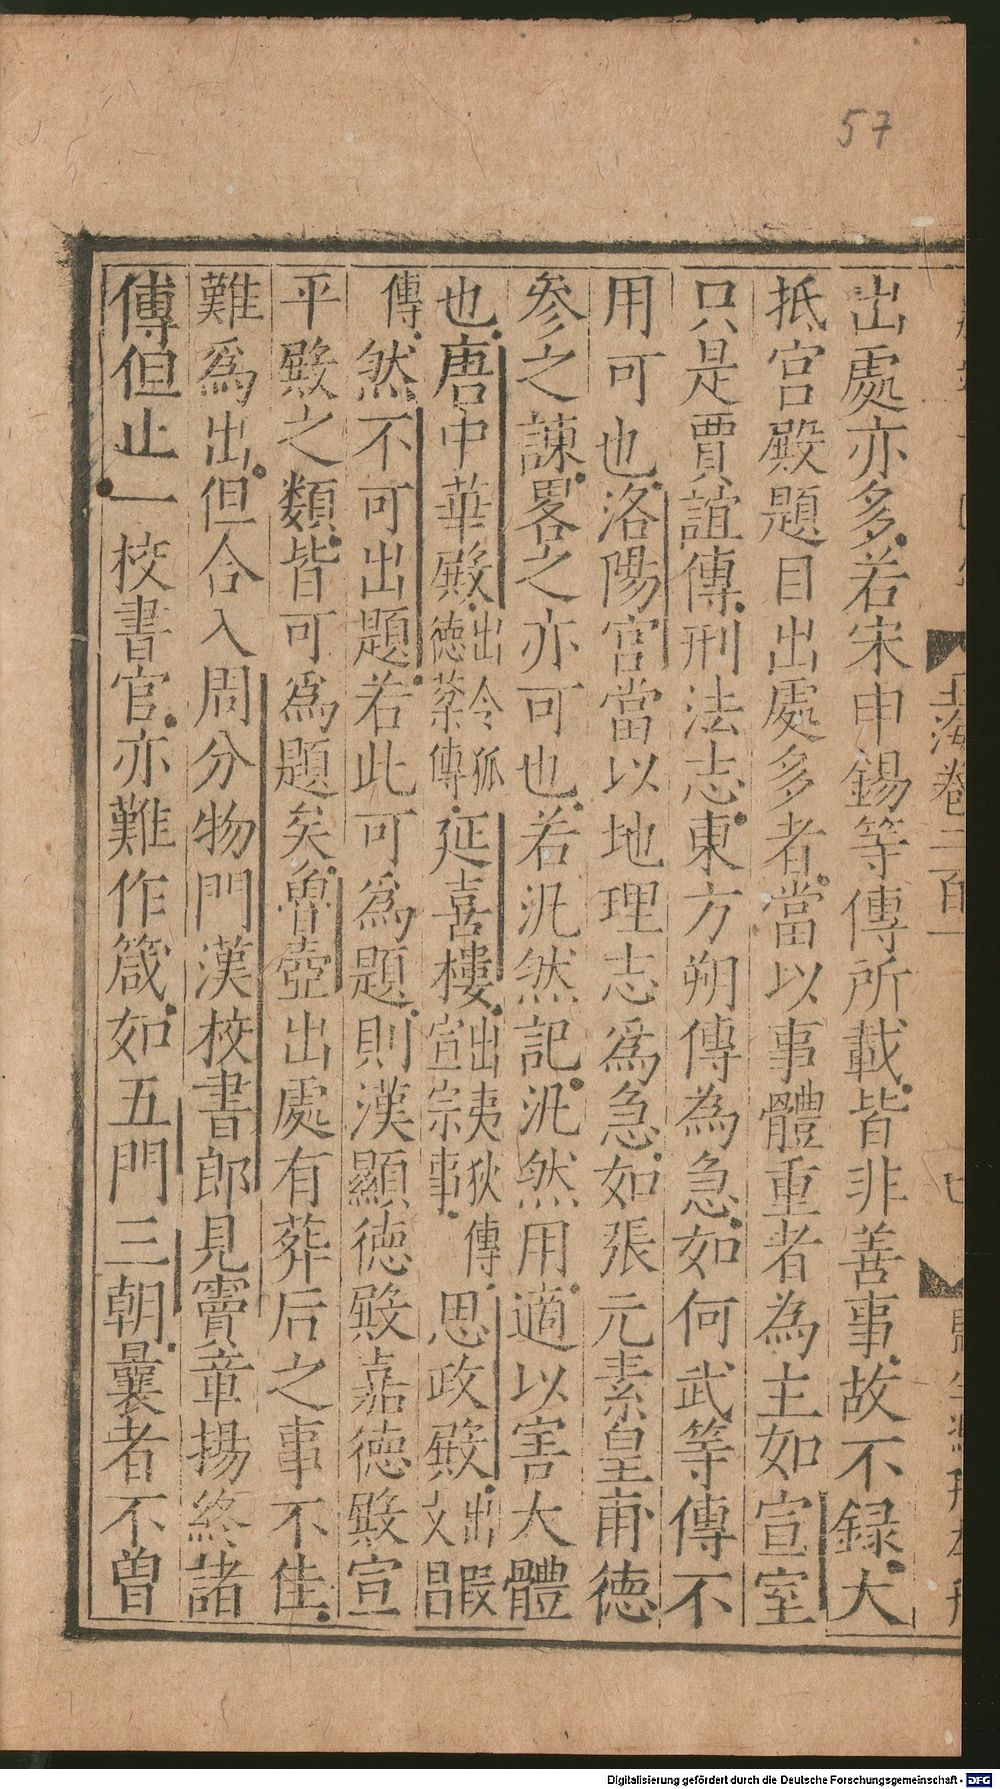 57
出處亦多若宋申錫等傳所載皆非善事故不録大
抵宫殿題目出處多者當以事體重者為主如宣室
只是賈誼傳刑法志東方朔傳為急如何武等傳不
用可也洛陽宫當以地理志爲急如張元素皇甫德
參之諫畧之亦可也若汎然記汎然用適以害大體
也唐中華殿出令狐德棻傳延喜樓出夷狄傳宣宗事思政殿出叚文昌
傳然不可出題若此可爲題則漢顯德殿嘉德殿宣
平殿之類皆可爲題矣魯壺出處有葬后之事不佳
難爲出但合入周分物門漢校書郎見竇章揚終諸
傳但止一校書官亦難作箴如五門三朝曩者不曽
玉海卷二百一
Digitalisierung gefördert durch die Deutsche Forschungsgemeinschaft - DFG